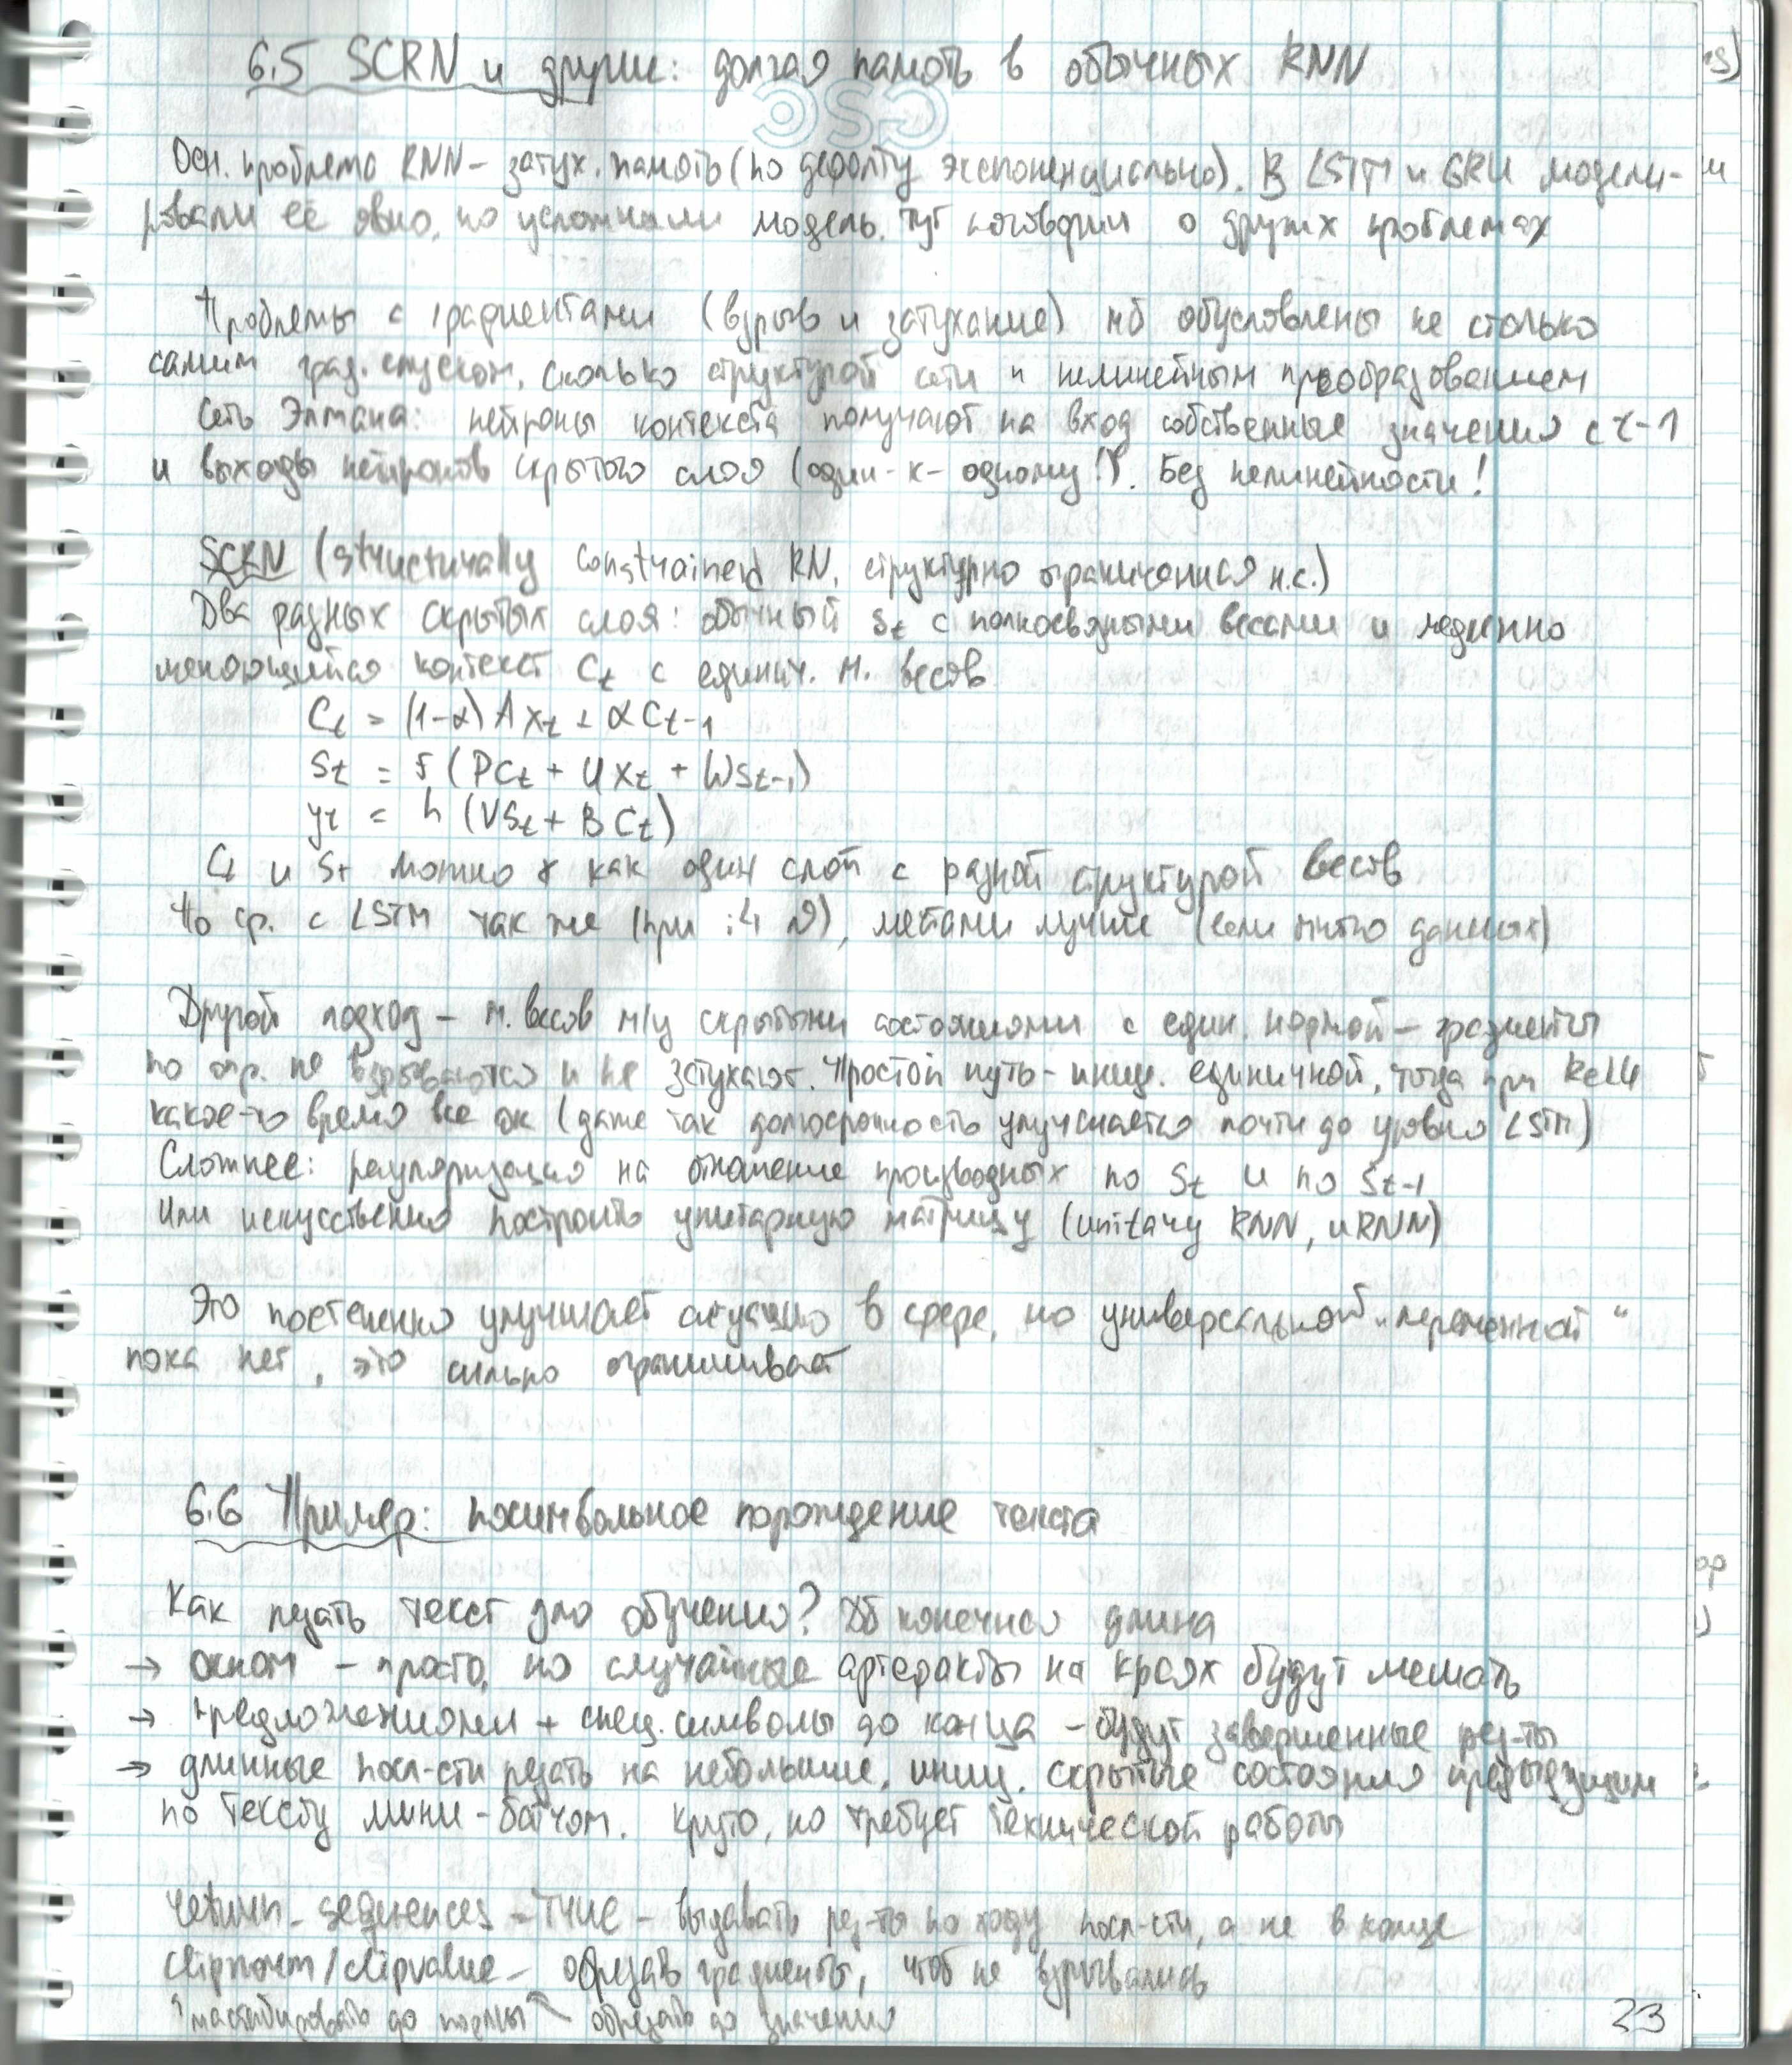 6.5 SCRN и другие: долгая память в обычных RNN
Осн. проблема RNN – затух. память (по дефолту экспоненциально). В LSTM и GRU модели-
ровали её явно, но усложнили модель. Тут поговорим о других проблемах
Проблемы с градиентами (взрыв и затухание) мб обусловлены не столько
самим град. спуском, сколько структурой сети и нелинейным преобразованием
Сеть Элмана: нейроны контекста получают на вход собственные значения с t-1
и выходы нейронов скрытого слоя (один-к-одному!). Без нелинейности!
SCRN (Structurally Constrained RN, структурно ограниченная н.с.)
Два разных скрытых слоя: обычный St с полносвязными весами и медленно
меняющийся контекст Ct с единич. м. весов
Ct = (1-α) A xt + α Ct-1
St = f (P Ct + U xt + W St-1)
yt = h (V St + B Ct)
Ct и St можно как один слой с разной структурой весов
По ср. с LSTM так же (при :4 ), местами лучше (если мало данных)
Другой подход – м. весов м/у скрытыми состояниями с един. нормой – градиенты
по опр. не взрываются и не затухают. Простой путь – иниц. единичной, тогда при ReLU
какое-то время все ок (даже так долгосрочность улучшается почти до уровня LSTM)
Сложнее: регуляризация на отношение производных по St и по St-1
Или искусственно построить унитарную матрицу (unitary RNN, uRNN)
Это постепенно улучшает ситуацию в сфере, но универсальной „переменной“
пока нет, это сильно ограничивает
6.6 Пример: посимвольное порождение текста
Как резать текст для обучения? конечная длина
→ окном – просто, но случайные артефакты на краях будут мешать
→ предложениями + спец. символы до конца – будут завершенные рез-ты
→ длинные посл-сти резать на небольшие, иниц. скрытые состояния предыдущим
по тексту мини-батчом. Круто, но требует технической работы
return_sequences = True – выдавать рез-ты по ходу посл-сти, а не в конце
clipnorm/clipvalue – обрезать градиенты, чтоб не взрывались
масштабировать до нормы обрезать до значения
23